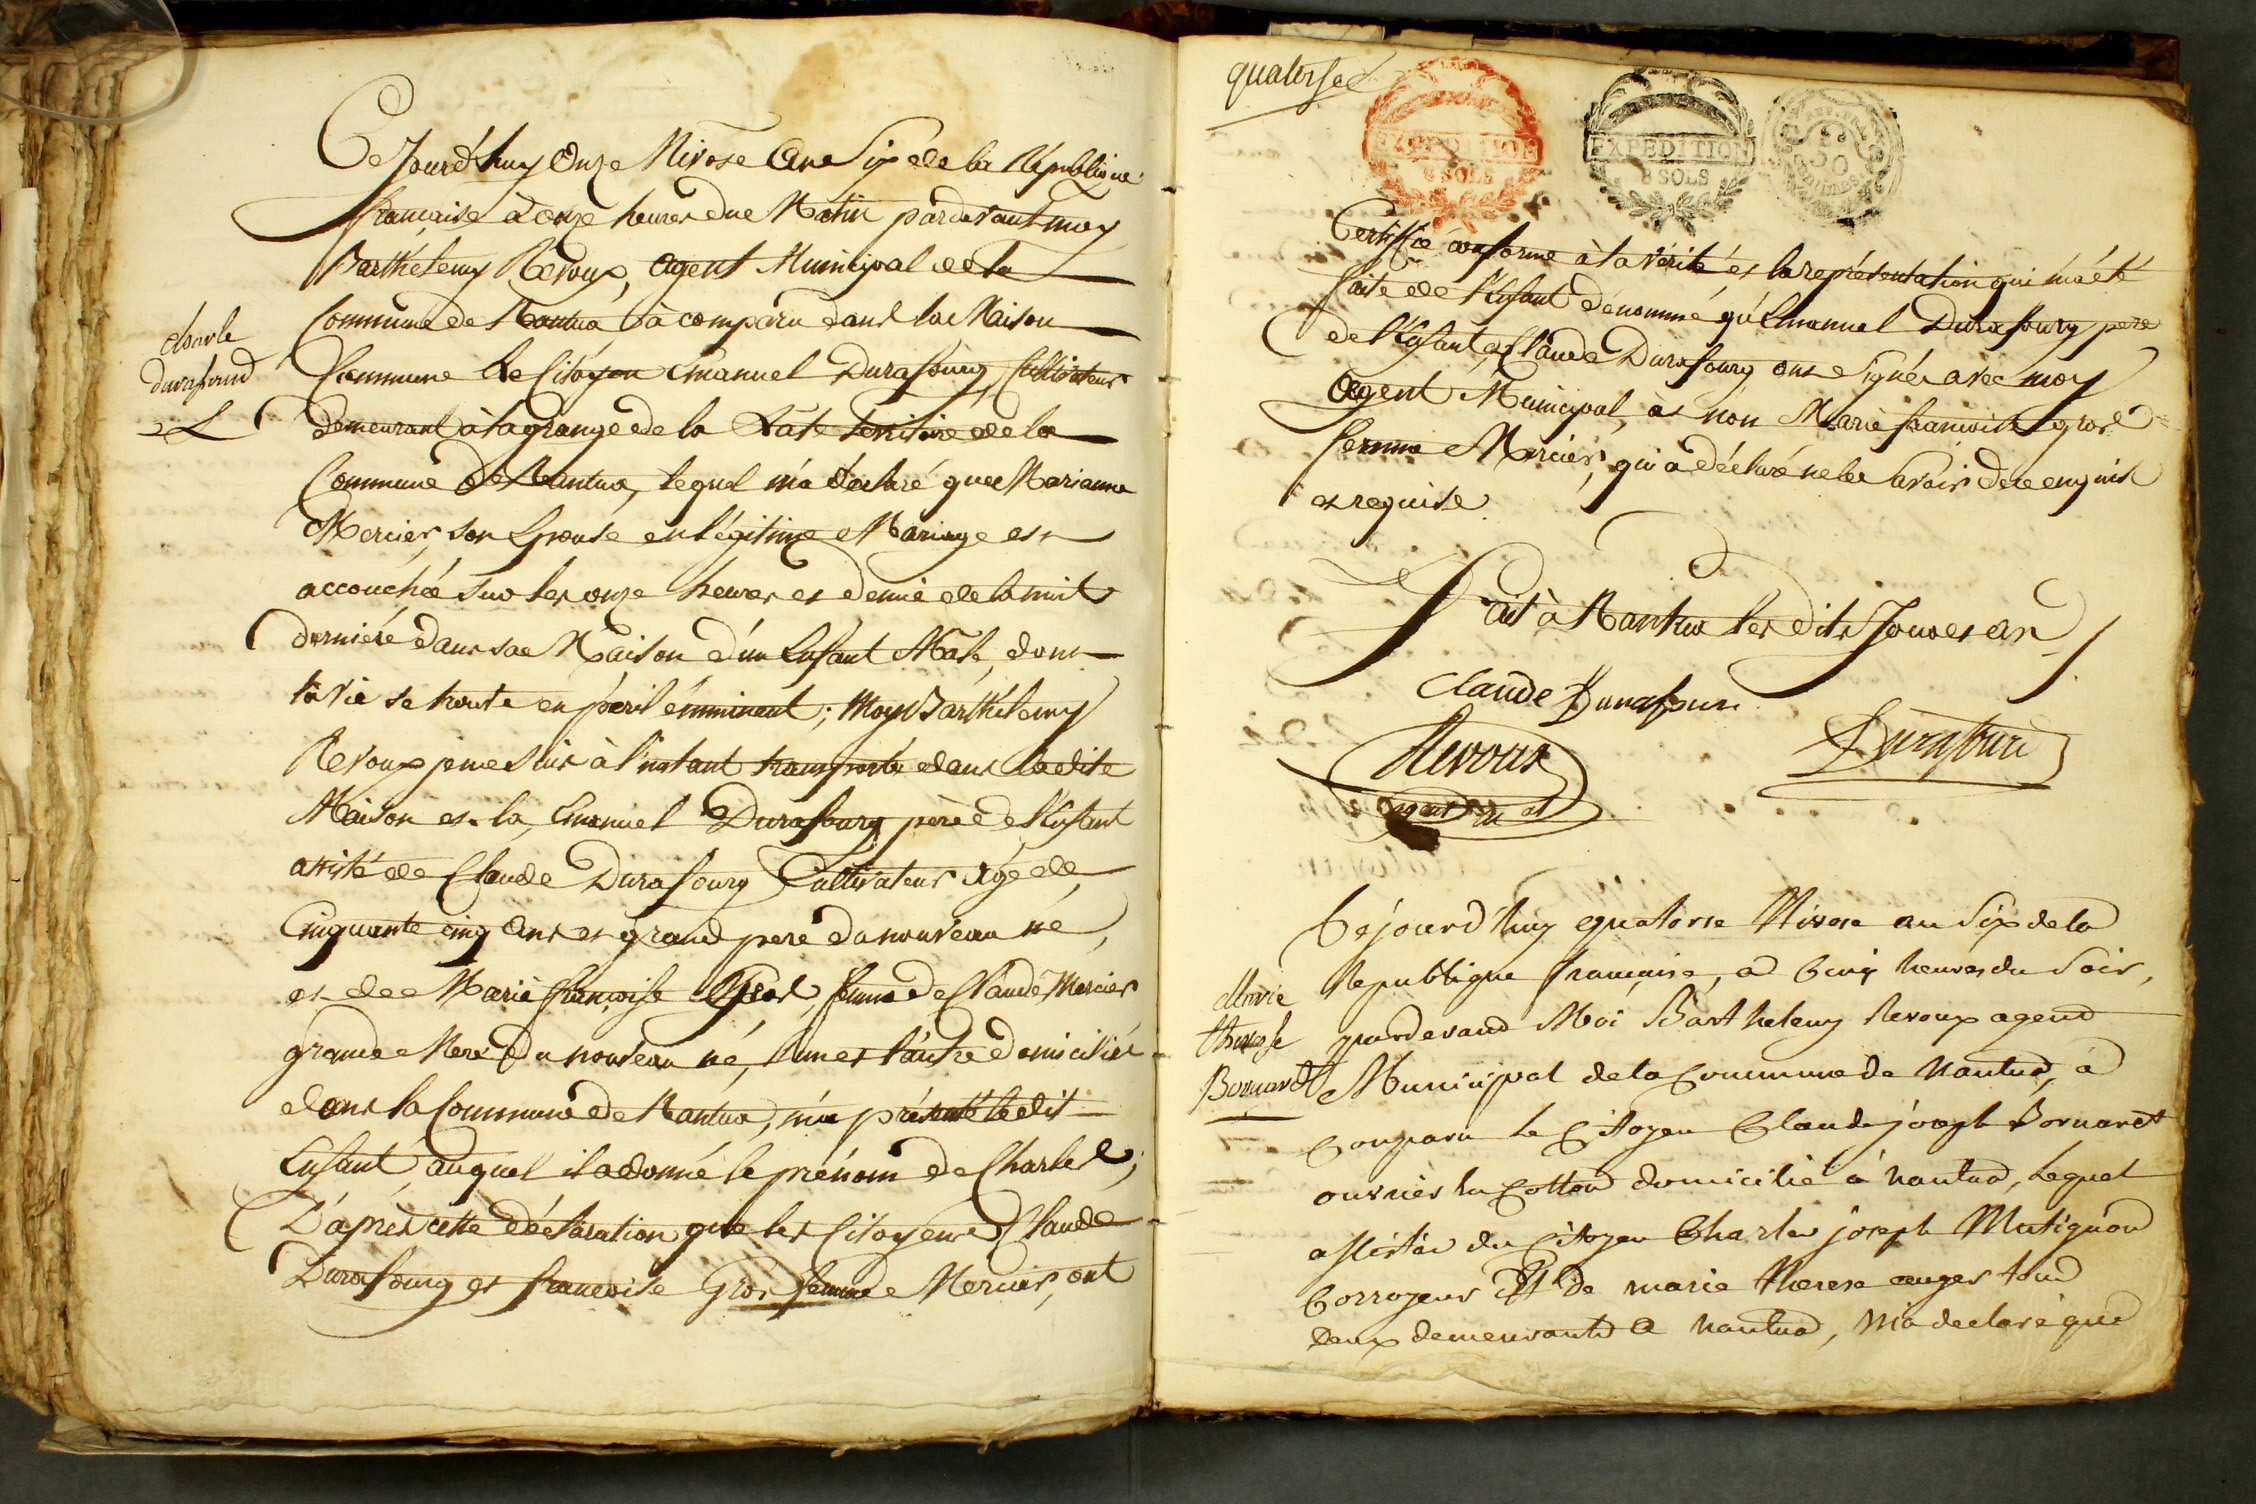 Ce Jourd'huy Onze Nivose An Six de la République
française à onze heures du Matin pardevant moy
Barthélemy Revoux, agent Municipal de la
Commune de Nantua, à comparu dans la Maison
Commune Le Citoyen émanuel Durafourg, Cultivateur
demeurant à la grange de la Territoire de la
Commune de Nantua, lequel m'a déclaré que Marianne
Mercier, son Epouse en légitime Mariage est
accouchée sur les onze heures et demie de la nuit
derniére dans sa Maison d'un Enfant Mâle, dont
la vie se trouve en péril émminent; Moy Barthélemy
Revoux je me suis à l'instant transporté dans ladite
Maison et là, Emanuel Durafourg père de l'Enfant
assisté de Claude Durafourg Cultivateur âgé de
Cinquante cinq ans et grand pere du nouveau né,
et de Marie françoise Gros, femme de Claude Mercier
grande Mere du nouveau né, l'un et l'autre domiciliés
dans la Commune de Nantua, m'a présenté ledit
Enfant, auquel il a donné le prénom de Charles;
D'après cette déclaration que les Citoyens Claude
Durafourg et francoise Gros femme Mercier, ont
charle
durafourd
quatorse
EXPEDITION
8 SOLS
EXPEDITION
8 SOLS
50
Certiffié conforme à la vérité, et la représentation qui m'a été
faite de l'Enfant dénommé qu'Emanuel Durafourg pere
de l'Enfant, et Claude Durafourg ont signés avec moy
Agent Municipal, et non Marie françoise gros
femme Mercier, qui a déclaré ne le savoir de ce enquise
et requise.
Fait à Nantua les dits Jour et an
Claude Durafour
Revoux
Durafour
agent
Cejourd'huy quatorse Nivose an Six de la
Republique française, à Cinq heures du Soir,
pardevand Moi Barthelemy Revoux agend
Municipal de la Commune de Nantua, à
Comparu le Citoyen Claude joseph Bornaret
ouvrier en Cotton domicilié à Nantua, Lequel
assistée du Citoyen Charles joseph Matignon
Corroyeur Et de marie therese auger tous
deux demeurants à Nantua, M'a declaré que
Marie
therese
Bornaret